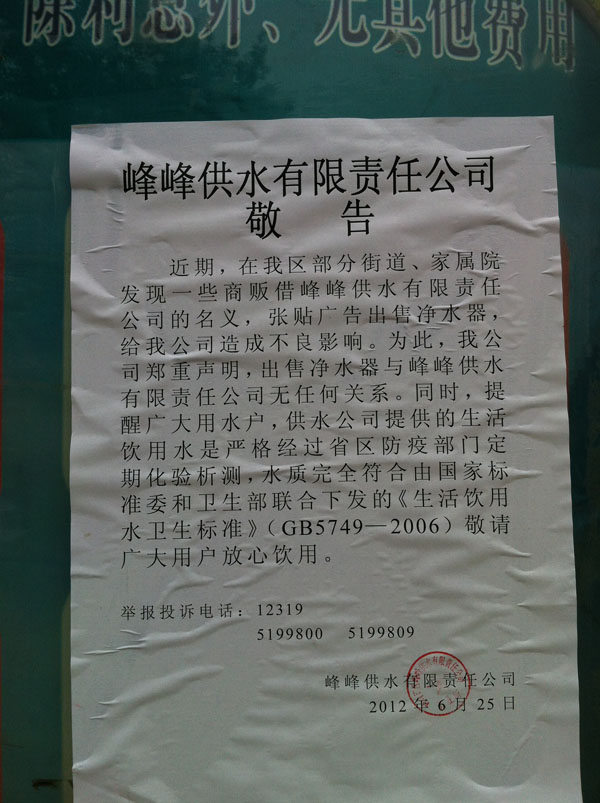 除利息外、无其他费用
峰峰供水有限责任公司
敬 告
近期，在我区部分街道、家属院
发现一些商贩借峰峰供水有限责任
公司的名义，张贴广告出售净水器，
给我公司造成不良影响。为此，我公
司郑重声明，出售净水器与峰峰供水
有限责任公司无任何关系。同时，提
醒广大用水户，供水公司提供的生活
饮用水是严格经过省区防疫部门定
期化验析测，水质完全符合由国家标
准委和卫生部联合下发的《生活饮用
水卫生标准》（GB5749—2006）敬请
广大用户放心饮用。
举报投诉电话：12319
5199800 5199809
峰峰供水有限责任公司
2012 年 6 月 25 日